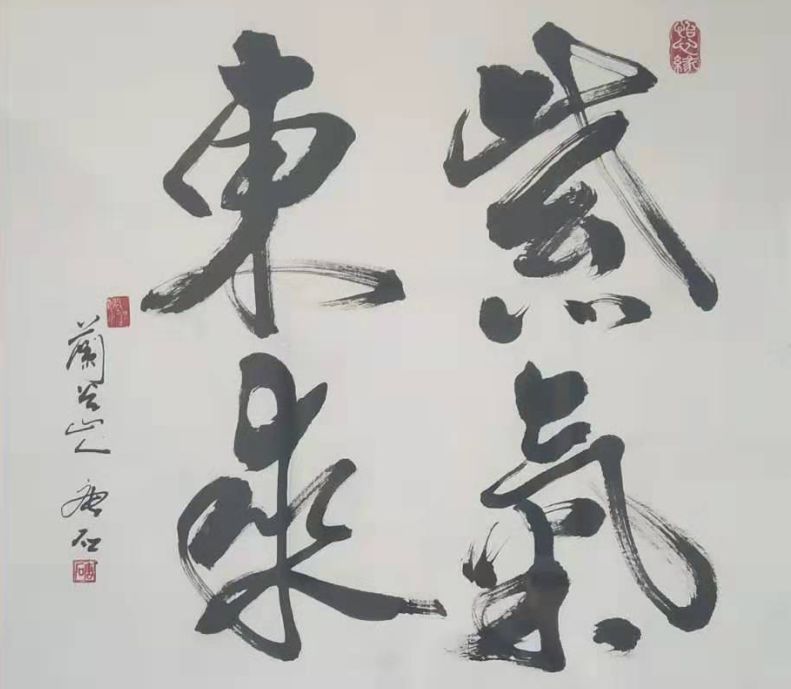 紫氣
東來
蘭谷山人 唐石